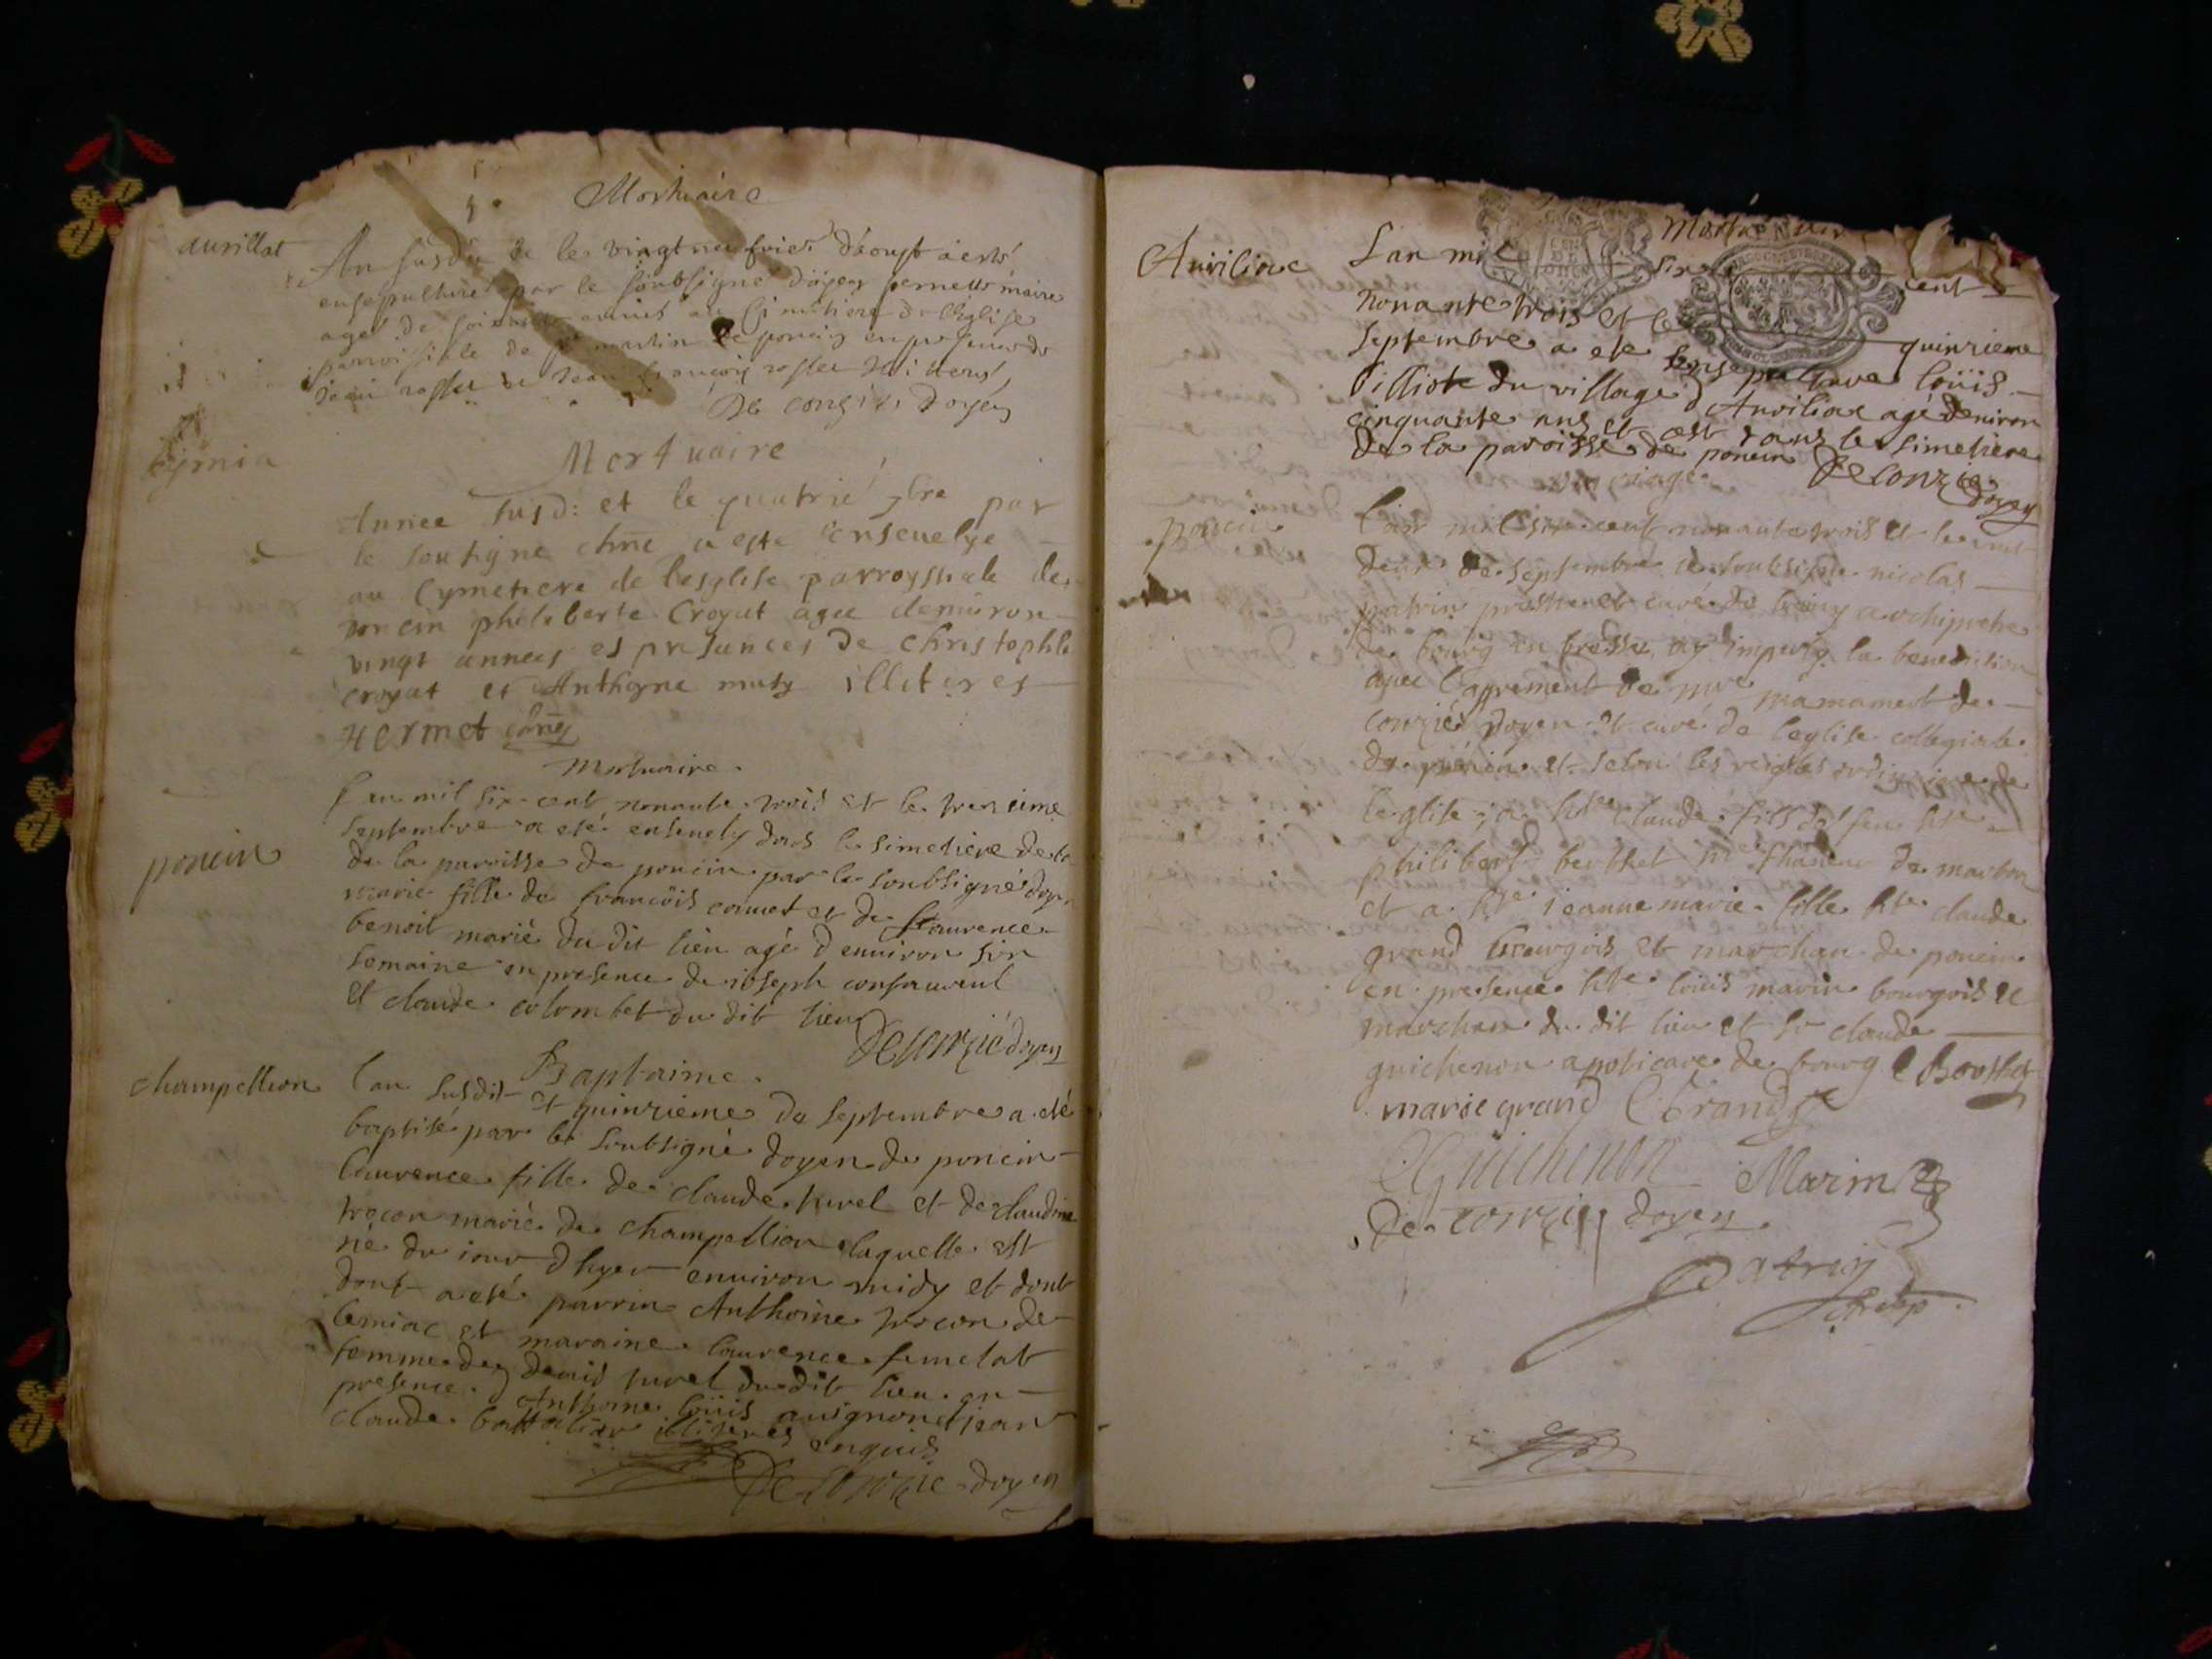 Mortuaire
aurillat
An susdit et le vingt neufvieme d'aoust a esté
ensepulturé par le soubsigné doyen pernette maire
agé de soixante annés au simetiere de leglise
parroissiale de st martin de poncin en presence de
De conzié doyen
Mortuaire
Annee susd: et le quatrié 7bre par
le soussigne chne a este ensevelye
au Cymetiere de lesglise parroyssiale de
poncin philiberte Croyat agee denviron
vingt annees es presances de Christophle
croyat et Anthoyne muty illiteres
Hermet
Mortuaire
poncin
l'an mil six cent nonante trois et le treizieme
septembre a eté ensevely dans le simetiere de la
de la paroisse de poncin par le soubsigné doye
marie fille de françois cornet et de laurence
benoit marié du dit lieu agé denviron six
semaine en presence de ioseph
et claude colombet du dit lieu
De conzié doyen
Baptaime
champellion
l'an susdit et quinzieme de septembre a eté
baptisé par le soubsigné doyen de poncin
laurence fille de claude jurel et de claudine
trocon marié de champellion laquelle est
né du iour d hyer environ midy et dont
dont a eté parrin Anthoine trocon de
lemiac et maraine laurence
femme de denis jurel du dit lieu en
presence d Anthoine loüis avignon et jean
claude illiteres enquis
De conzié doyen
Mortuaire
Aviliac
L'an mil six cent
nonante trois et le quinzieme
septembre a ete ensepulture loüis
billiot du village d Aviliac agé deniron
cinquante ans et est dans le simetiere
de la paroisse de poncin De conzié
doyen
mariage
poncin
l'an mil six cent nonante trois et le vint
deux de septembre ie soubsigné nicolas
patrin prestre et curé de archipretre
de bourg en bresse ay imparty la benediction
avec l'agrement de mre mamament de
conzié doyen et curé de leglise collegiate
de poncin et selon les reigles ordinaire de
leglise; a hte claude fils de feu hte
philibert berthet mre de marbon
et a hte ieanne marie fille hte claude
grand bourgois et marchan de poncin
en presence hte loüis marin bourgois et
marchan du dit lieu et sr claude
guichenon apoticare de bourg C Berthet
marie grand C Grand
C Guichenon Marin
De conzié doyen
Patrin
Archip.